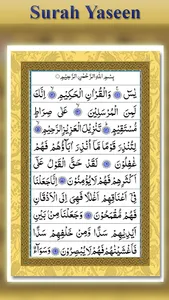 Surah Yaseen
بِسْمِ اللّٰهِ الرَّحْمٰنِ الرَّحِیْمِ
یٰسٓ وَالْقُرْاٰنِ الْحَكِیْمِ اِنَّكَ
لَمِنَ الْمُرْسَلِیْنَ عَلٰی صِرَاطٍ
مُّسْتَقِیْمٍ تَنْزِیْلَ الْعَزِیْزِ الرَّحِیْمِ
لِتُنْذِرَ قَوْمًا مَّاۤ اُنْذِرَ اٰبَآؤُهُمْ فَهُمْ
غٰفِلُوْنَ لَقَدْ حَقَّ الْقَوْلُ عَلٰۤی
اَكْثَرِهِمْ فَهُمْ لَا یُؤْمِنُوْنَ اِنَّا جَعَلْنَا
فِیْۤ اَعْنَاقِهِمْ اَغْلٰلًا فَهِیَ اِلَی الْاَذْقَانِ
فَهُمْ مُّقْمَحُوْنَ وَجَعَلْنَا مِنْۢ بَیْنِ
اَیْدِیْهِمْ سَدًّا وَّمِنْ خَلْفِهِمْ سَدًّا
فَاَغْشَیْنٰهُمْ فَهُمْ لَا یُبْصِرُوْنَ وَسَوَآءٌ